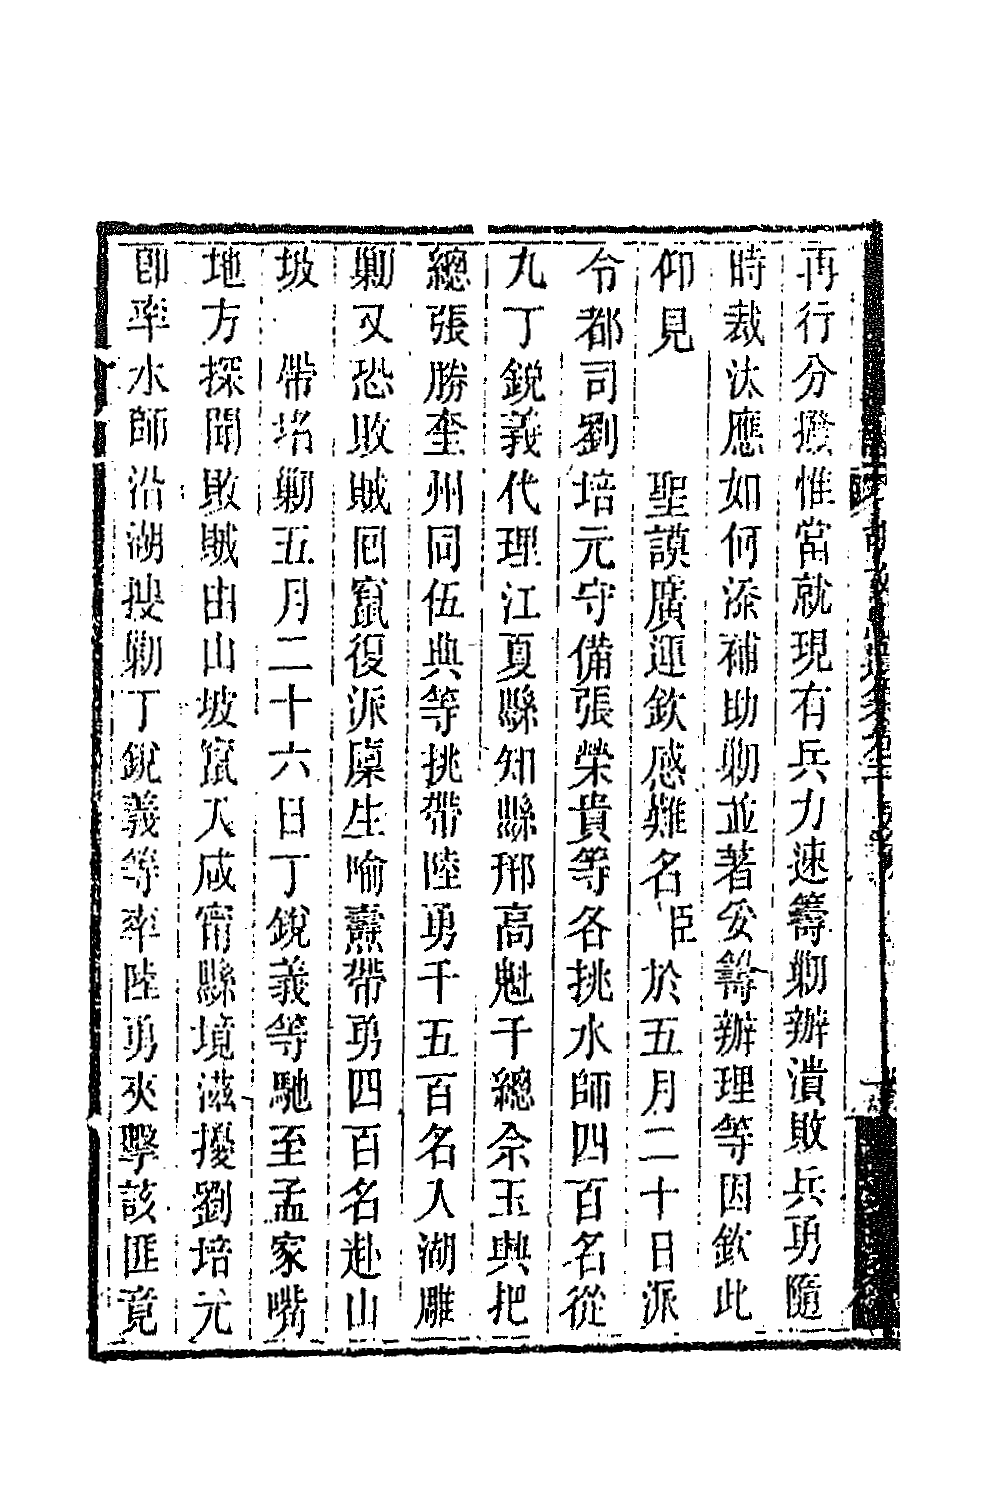 再行分撥惟當就現有兵力速籌勦辦潰敗兵勇隨
時裁汰應如何添補助勦並著妥籌辦理等因欽此
仰見　聖謨廣運欽感難名臣於五月二十日派
令都司劉培元守備張榮貴等各挑水師四百名從
九丁銳義代理江夏縣知縣邢高魁千總佘玉典把
總張勝奎州同伍典等挑帶陸勇千五百名入湖雕
勦又恐敗賊囘竄復派廩生喻燾帶勇四百名赴山
坡　帶堵勦五月二十六日丁銳義等馳至孟家嘴
地方探聞敗賊由山坡竄入咸甯縣境滋擾劉培元
卽率水師沿湖搜勦丁銳義等率陸勇夾擊該匪竟